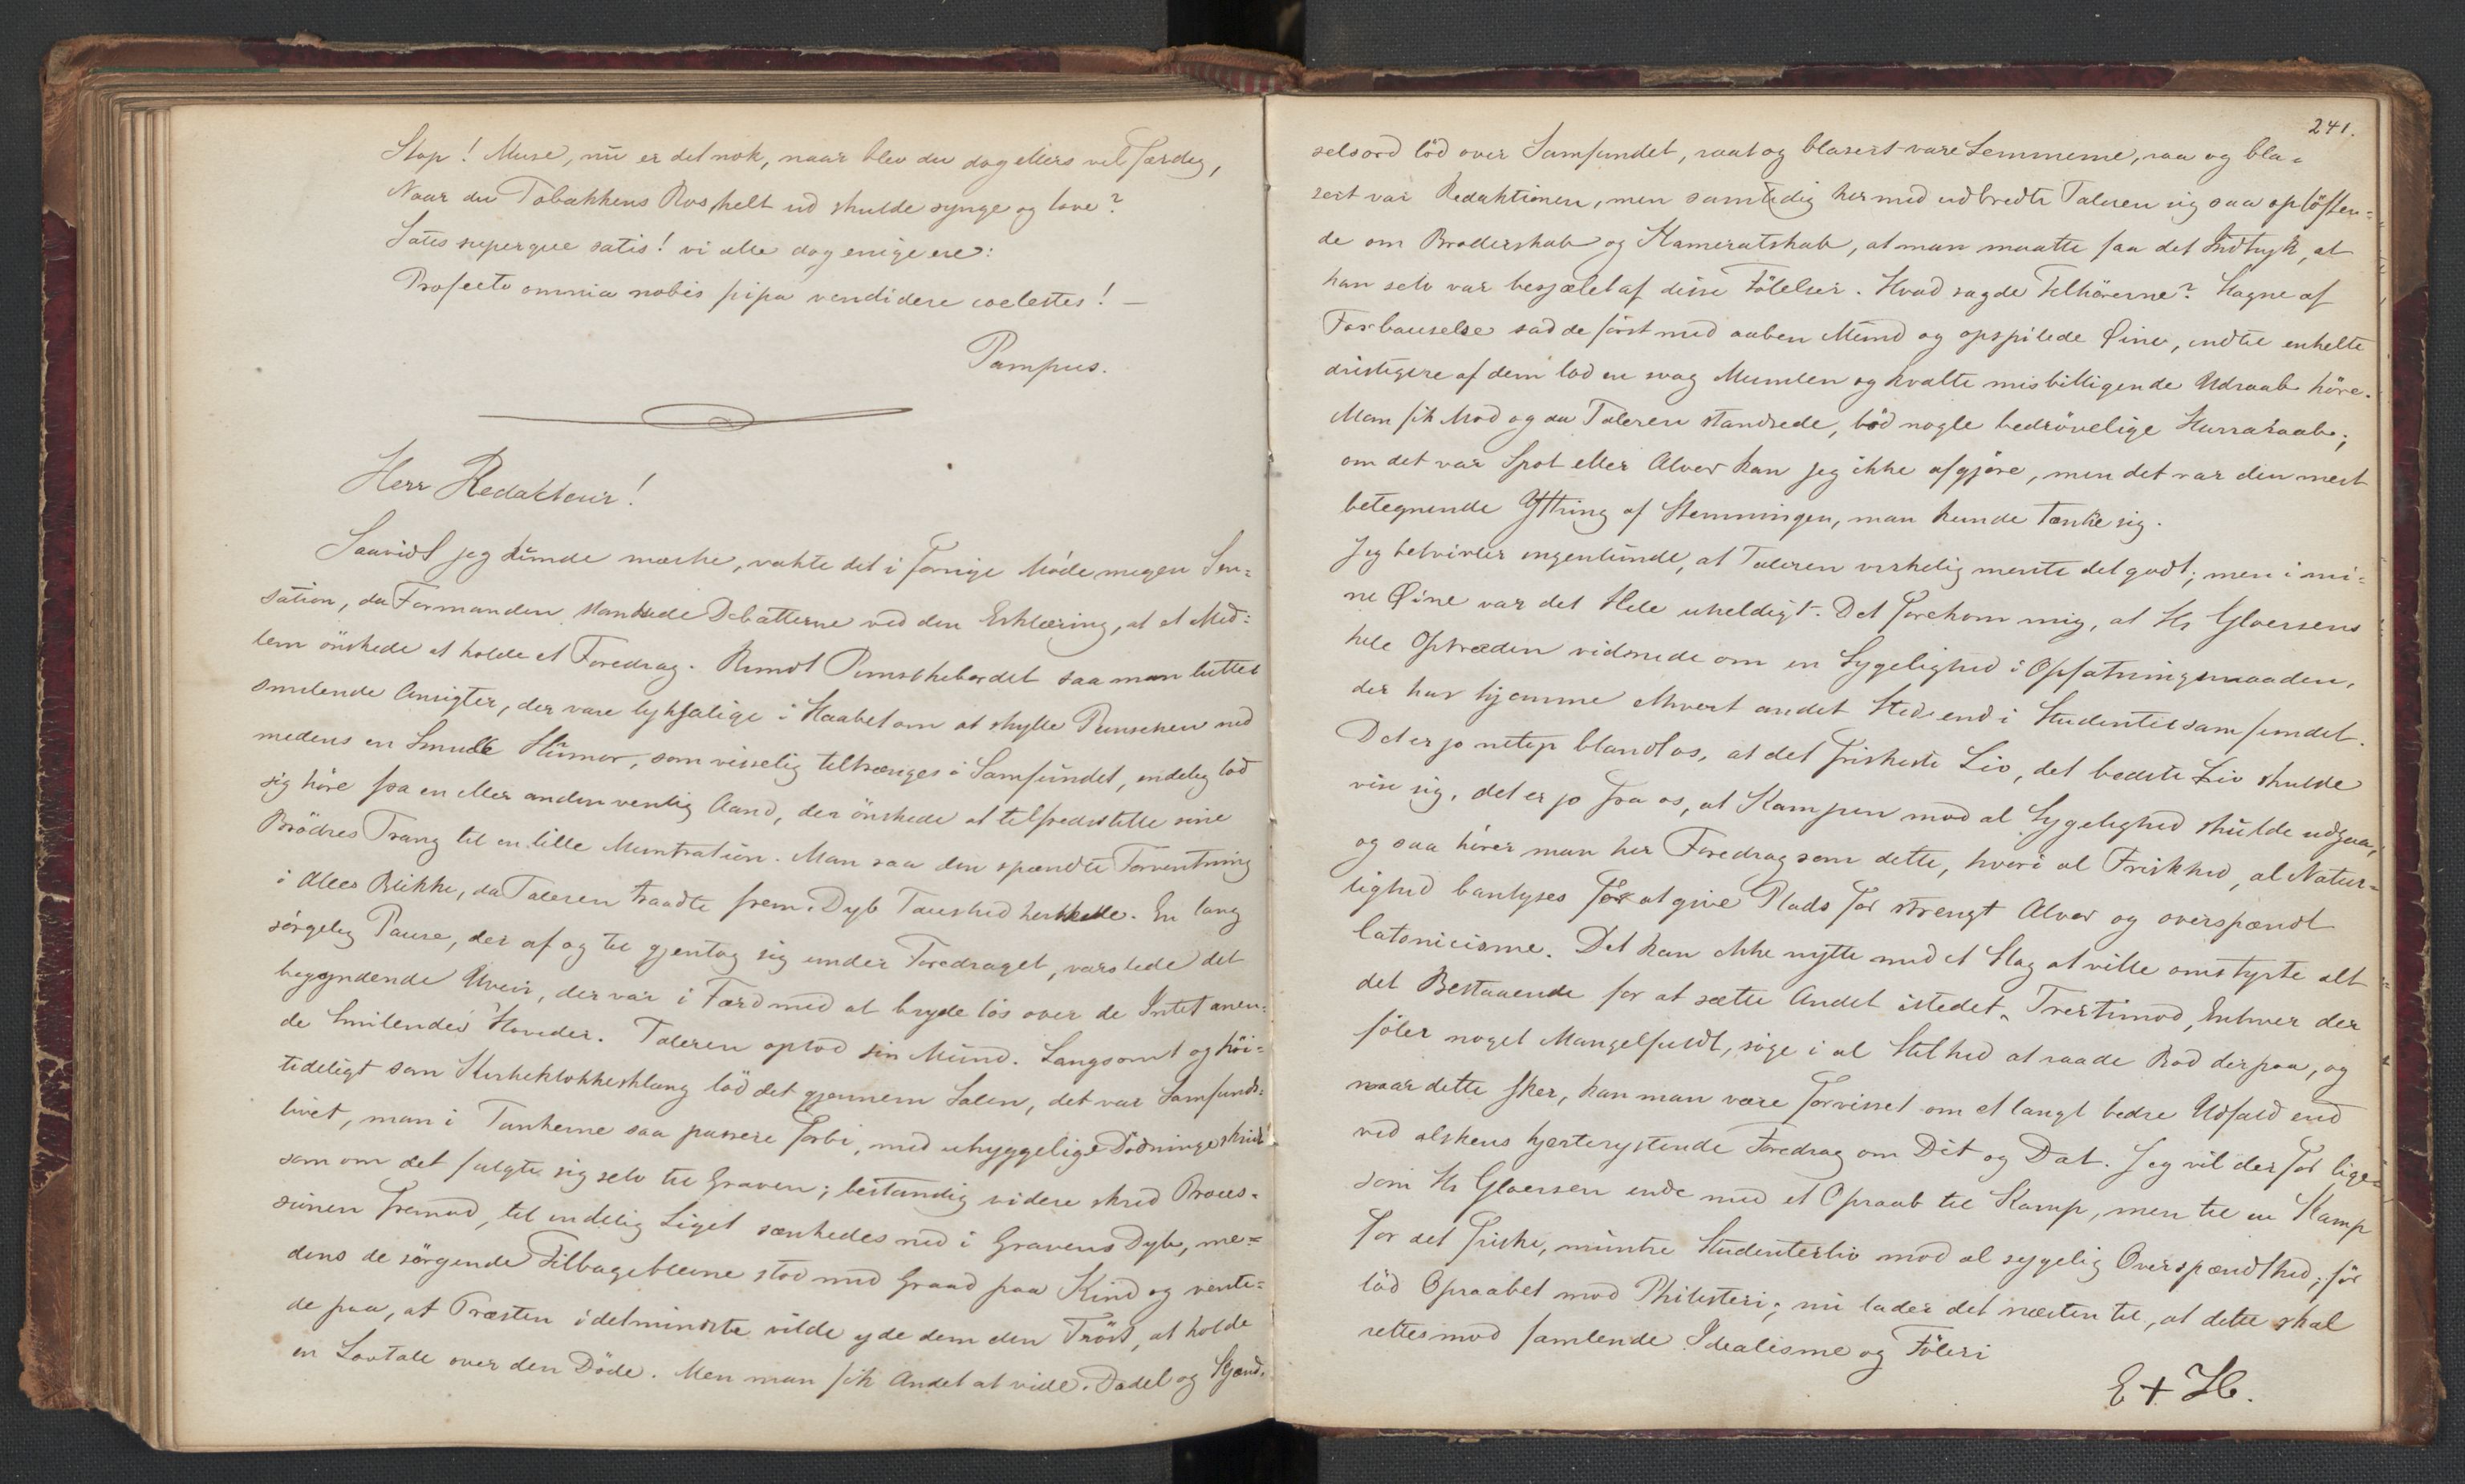 Stop! Muse, nu er det nok, naar blev du dog ellers vel færdig,
Naar du Tobakkens Ros helt ud skulde synge og love?
Satis superque satis! vi alle dog enige ere:
Profecto omnia nobis pipa vendidere coelestes! —
Pampus.
Herr Redakteur!
Saavidt jeg kunde mærke, vakte det i forrige Møde megen Sen=
sation, da Formanden standsede Debatterne ved den Erklæring, at et Med=
lem ønskede at holde et Foredrag. Rundt Punschebordet saa man luttet
smilende Ansigter, der vare lyksalige i Haabet om at skylle Punschen ned
medens en Smule Humor, som visselig tiltrænges i Samfundet, endelig lod
sig høre fra en eller anden venlig Aand, der ønskede at tilfredsstille sine
Brødres Trang til en lille Muntration. Man saa den spændte Forventning
i Alles Blikke, da Taleren traadte frem. Dyb Taushed herskede. En lang
sørgelig Pause, der af og til gjentog sig under Foredraget, varslede det
begyndende Uveir, der var i Færd med at bryde løs over de Intet anen=
de Smilendes Hoveder. Taleren oplod sin Mund. Langsomt og høi=
tideligt som Kirkeklokkeklang lød det gjennem Salen, det var Samfunds=
livet, man i Tankerne saa passere forbi, med uhyggelige Dødningeskridt
som om det fulgte sig selv til Graven; bestandig videre skred Proces=
sionen fremad, til endelig Liget sænkedes ned i Gravens Dyb, me=
dens de sørgende Tilbageblevne stod med Graad paa Kind og vente=
de paa, at Præsten idetmindste vilde yde dem den Trøst, at holde
en Lovtale over den Døde. Men man fik Andet at vide. Dadel og Skjænd=
241.
selsord lød over Samfundet, raat og blasert vare Lemmerne, raa og bla=
sert var Redaktionen, men samtidig hermed udbredte Taleren sig saa opløften=
de om Broderskab og Kameratskab, at man maatte faa det Indtryk, at
han selv var besjælet af disse Følelser. Hvad sagde Tilhørerne? Stagne af
Forbauselse sad de først med aaben Mund og opspilede Øine, indtil enkelte
dristigere af dem lod en svag Mumlen og kvalte misbilligende Udraab høre.
Man fik Mod og da Taleren standsede, lød nogle bedrøvelige Hurraraab;
om det var Spot eller Alvor kan jeg ikke afgjøre, men det var den mest
betegnende Yttring af Stemningen, man kunde tænke sig.
Jeg betvivler ingenlunde, at Taleren virkelig mente det godt; men i mi=
ne Øine var det Hele uheldigt. Det forekom mig, at Hr Gloersens
hele Optræden vidnede om en Sygelighed i Opfatningsmaaden,
der har hjemme ethvert andet Sted end i Studentersamfundet.
Det er jo netop blandt os, at det friskeste Liv, det bedste Liv skulde
vise sig, det er jo fra os, at Kampen mod al Sygelighed skulde udgaa,
og saa hører man her Foredrag som dette, hvori al Friskhed, al Natur=
lighed banlyses for at give Plads for strengt Alvor og overspændt
latonicisme. Det kan ikke nytte med et Slag at ville omstyrte alt
det Bestaaende for at sætte Andet istedet. Tvertimod, Enhver der
føler noget Mangelfuldt, søge i al Stilhed at raade Bod derpaa, og
naar dette sker, kan man være forvisset om et langt bedre Udfald end
ved alskens hjerterystende Foredrag om Dit og Dat. Jeg vil derfor lige=
som Hr Gloersen ende med et Opraab til Kamp, men til en Kamp
for det friske, muntre Studenterliv mod al sygelig Overspændthed; før
lød Opraabet mod Philisteri; nu lader det næsten til, at dette skal
rettes mod famlende Idealisme og Føleri
E + H.